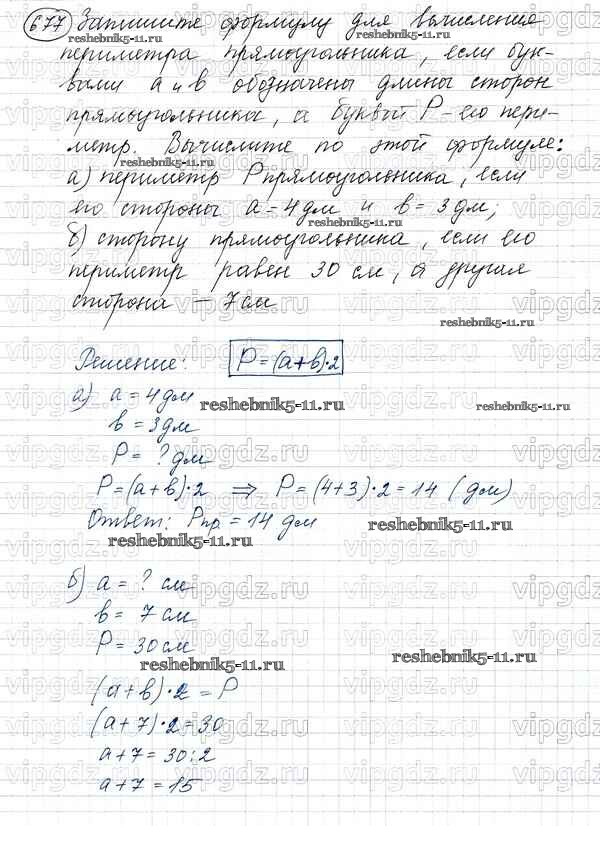 677 Запишите формулу для вычисления
периметра прямоугольника, если бук-
вами a и b обозначены длины сторон
прямоугольника, а буквой P - его пери-
метр. Вычислите по этой формуле:
а) периметр P прямоугольника, если
его стороны a = 4 дм и b = 3 дм;
б) сторону прямоугольника, если его
периметр равен 30 см, а другая
сторона - 7 см
Решение: P = (a + b) · 2
а) a = 4 дм
b = 3 дм
P = ? дм
P = (a + b) · 2 ⇒ P = (4 + 3) · 2 = 14 (дм)
Ответ: Pпр = 14 дм
б) a = ? см
b = 7 см
P = 30 см
(a + b) · 2 = P
(a + 7) · 2 = 30
a + 7 = 30 : 2
a + 7 = 15
reshebnik5-11.ru
vipgdz.ru